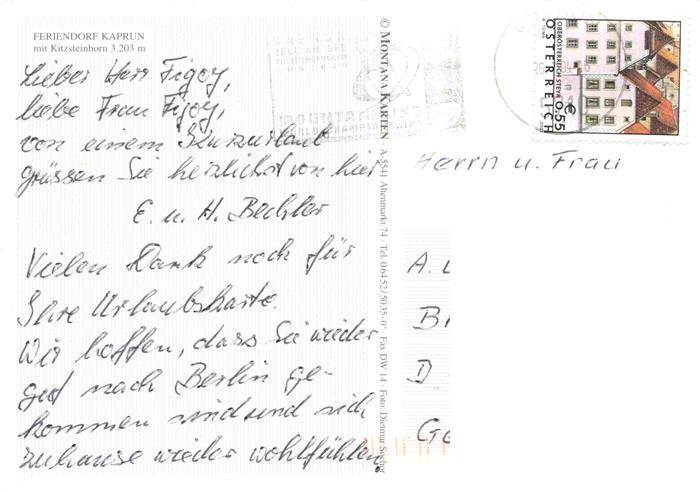 FERIENDORF KAPRUN
mit Kitzsteinhorn 3.203 m
Lieber Herr Figoy,
liebe Frau Figoy,
von einem Kurzurlaub
grüssen Sie herzlichst von hier
E. u. H. Bechler
Vielen Dank noch für
Ihre Urlaubskarte.
Wir hoffen, dass Sie wieder
gut nach Berlin ge-
kommen sind und sich
zuhause wieder wohlfühlen.
© MONTANA KARTEN A-5541 Altenmarkt 74 · Tel. 06452/5035-0* · Fax DW 14 · Foto: Dietmar Sochor
MOUNTAIN
OBERÖSTERREICH STEYR
ÖSTERREICH
€ 0,55
Herrn u. Frau
A. L
B
D
Ge